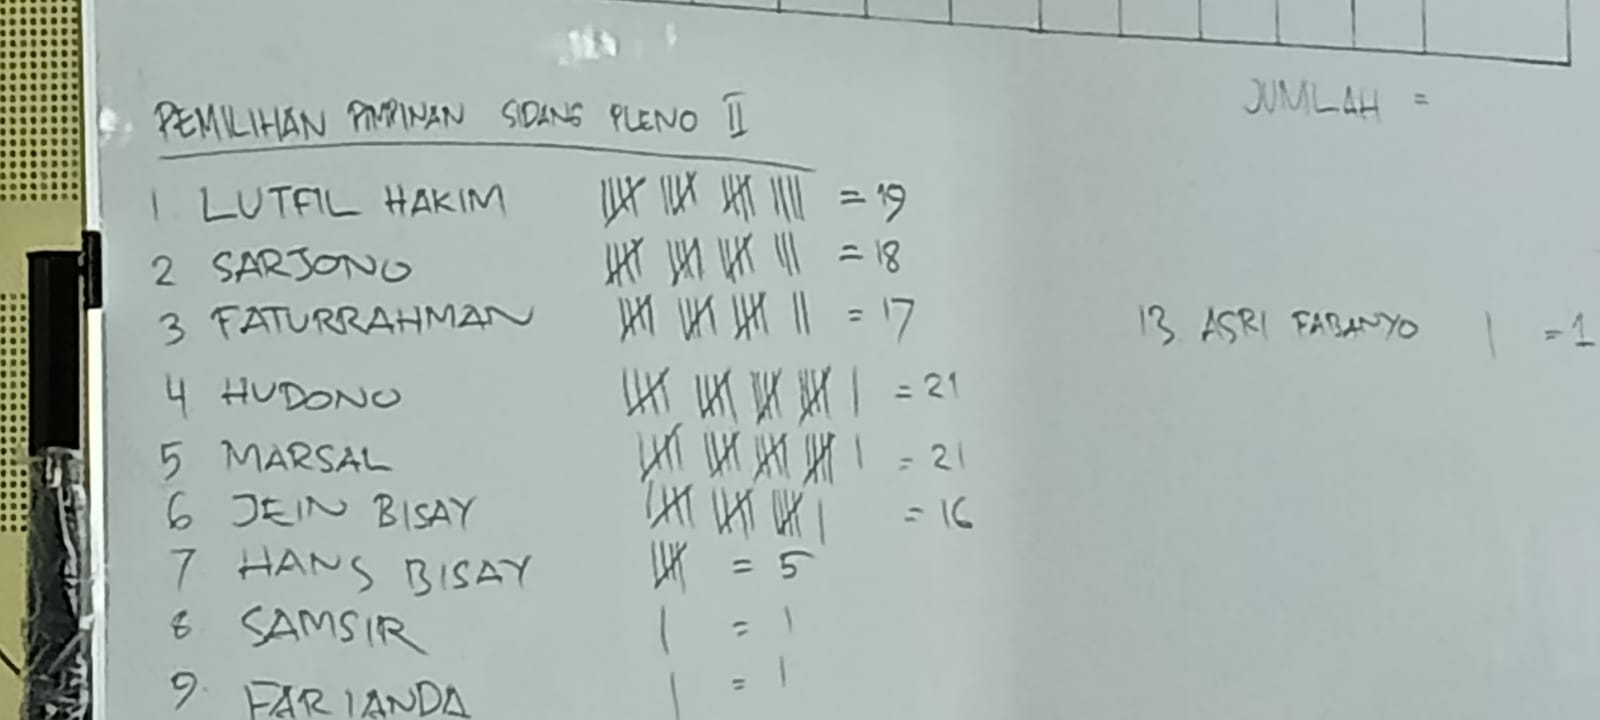 PEMILIHAN PIMPINAN SIDANG PLENO II
1 LUTFIL HAKIM = 19
2 SARJONO = 18
3 FATURRAHMAN = 17
4 HUDONO = 21
5 MARSAL = 21
6 JEIN BISAY = 16
7 HANS BISAY = 5
8 SAMSIR = 1
9. FARIANDA = 1
JUMLAH =
13. ASRI FABANYO = 1